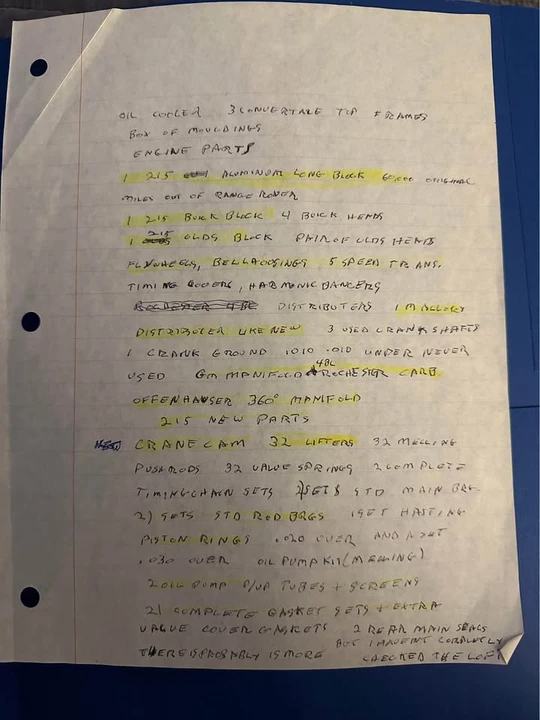 OIL COOLER 3 CONVERTABLE TOP FRAMES
BOX OF MOULDINGS
ENGINE PARTS
1 215 ALUMINUM LONG BLOCK 60,000 ORIGINAL
MILES OUT OF RANGE ROVER
1 215 BUICK BLOCK 4 BUICK HEADS
1 215 OLDS BLOCK PAIR OF OLDS HEADS
FLYWHEELS, BELLHOUSINGS 5 SPEED TRANS.
TIMING COVERS, HARMONIC BANCERS
ROCHESTER 4BL DISTRIBUTERS 1 MALLORY
DISTRIBUTER LIKE NEW 3 USED CRANKSHAFTS
1 CRANK GROUND .010 .010 UNDER NEVER
USED GM MANIFOLD & 4BL ROCHESTER CARB
OFFENHAUSER 360° MANIFOLD
215 NEW PARTS
CRANE CAM 32 LIFTERS 32 MELLING
PUSHRODS 32 VALUE SPRINGS 2 COMPLETE
TIMING CHAIN SETS 2) SETS STD MAIN BRG
2) SETS STD ROD BRGS 1 SET HASTING
PISTON RINGS .020 OVER AND A SET
.030 OVER OIL PUMP KIT (MELLING)
2 OIL PUMP P/UP TUBES + SCREENS
2) COMPLETE GASKET SETS + EXTRA
VALUE COVER GASKETS 2 REAR MAIN SEALS
THERE IS PROBABLY IS MORE BUT I HAVENT COMPLETLY
CHECKED THE LOFT